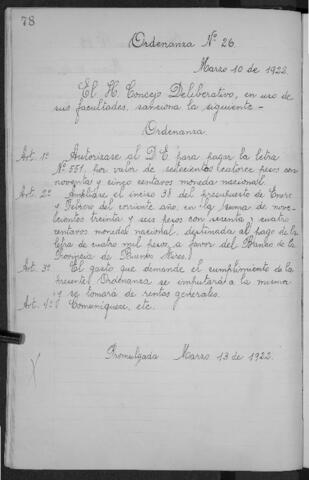 78
Ordenanza Nº 26.
Marzo 10 de 1922.
El H. Concejo Deliberativo, en uso de
sus facultades, sanciona la siguiente -
Ordenanza.
Art. 1º Autorízase al D.E. para pagar la letra
Nº 551, por valor de setecientos catorce pesos con
noventa y cinco centavos moneda nacional.
Art. 2º Ampliáse el inciso 38 del presupuesto de Enero
y Febrero del corriente año, en la suma de nove-
cientos treinta y seis pesos con sesenta y cuatro
centavos moneda nacional, destinada al pago de la
letra de cuatro mil pesos a favor del Banco de la
Provincia de Buenos Aires.
Art. 3º El gasto que demande el cumplimiento de la
presente Ordenanza se imputará a la misma
y se tomará de rentas generales.
Art. 4º Comuníquese, etc.
Promulgada Marzo 13 de 1922.